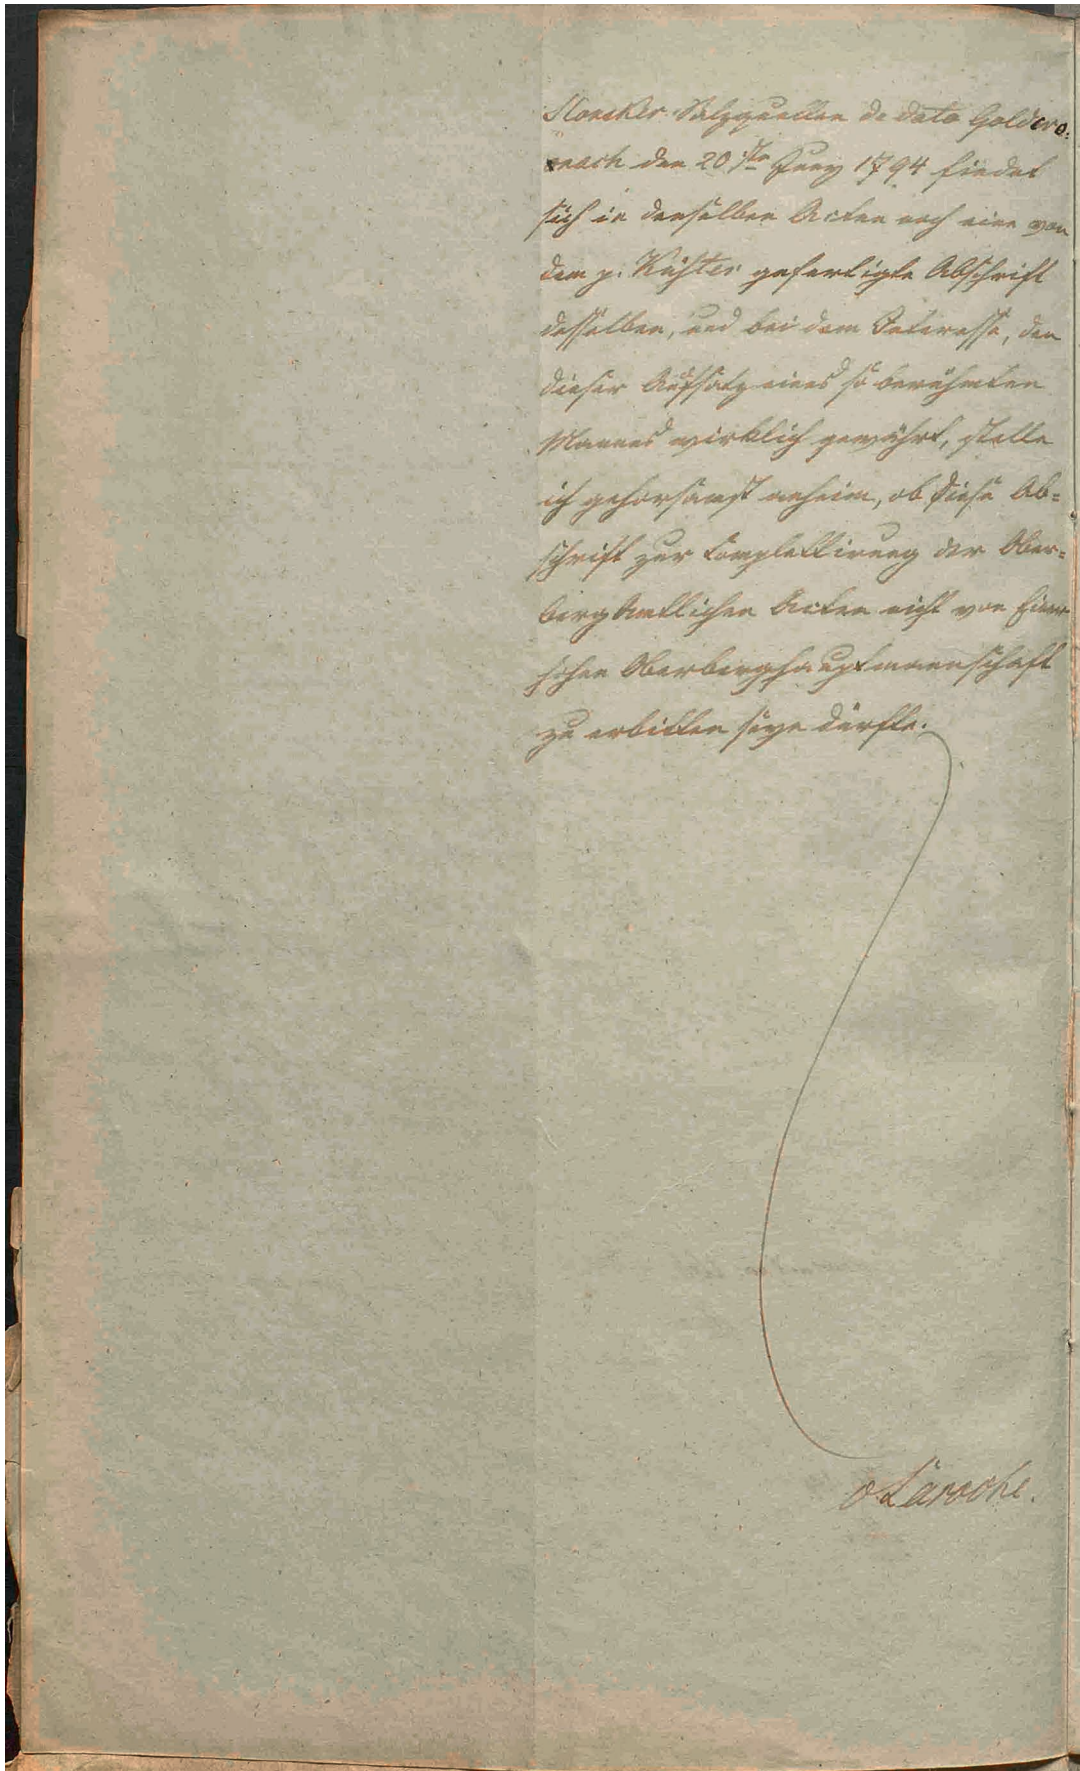 Slonsker Salzquellen de dato Goldcro:
nach den 20ſten Juny 1794 findet
sich in denselben Acten noch eine von
dem p. Küster gefertigte Abschrift
desselben, und bei dem Interesse, den
dieser Aufsatz eines so berühmten
Mannes wirklich gewährt, stelle
ich gehorsamst anheim, ob diese Ab=
schrift zur Complettirung der Ober=
bergamtlichen Acten nicht von Einer
hohen Oberberghauptmannschaft
zu erbitten seyn dürfte.
v Laroche.